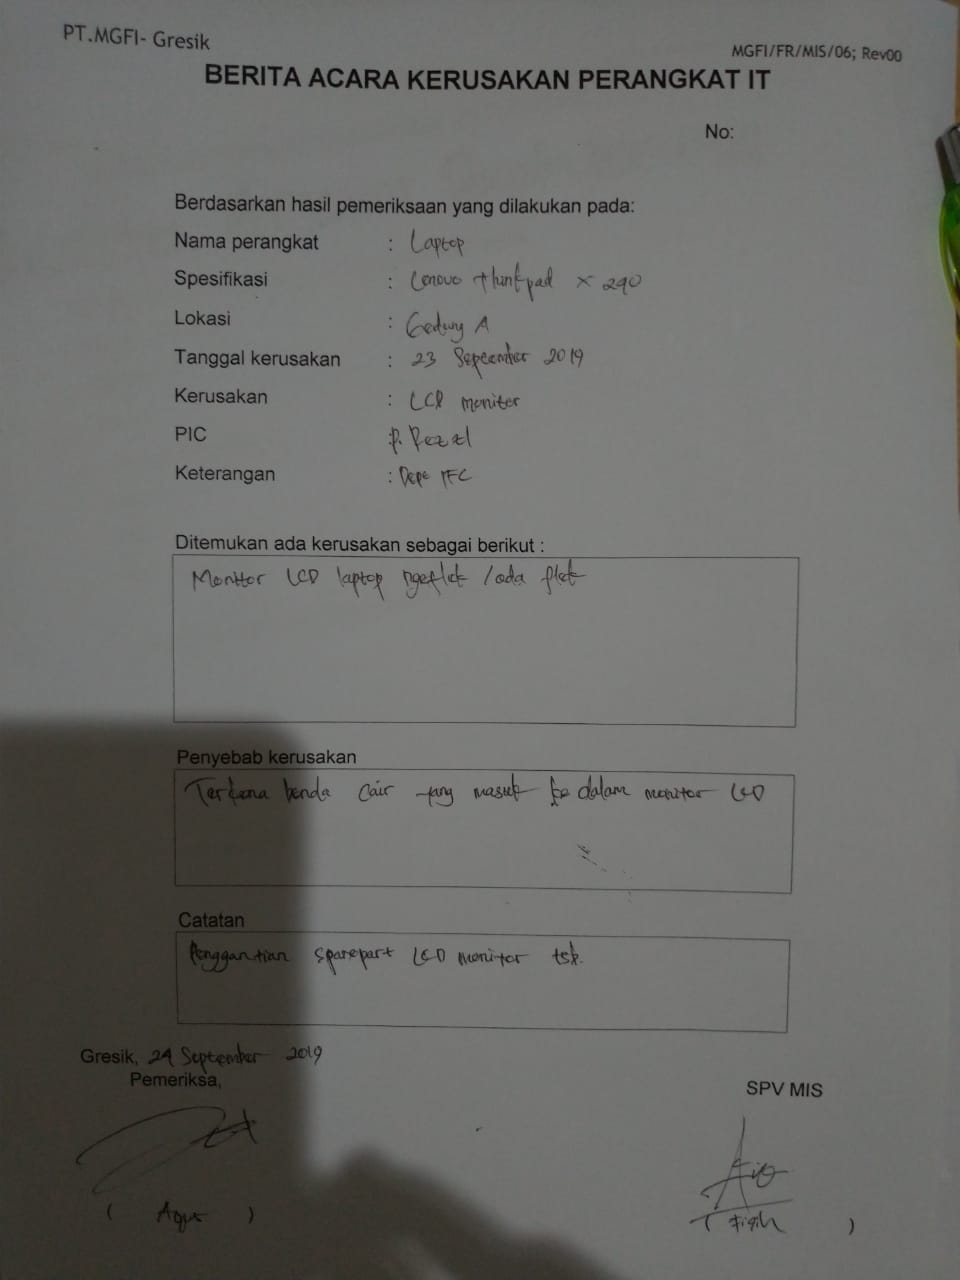 PT.MGFI- Gresik
MGFI/FR/MIS/06; Rev00
BERITA ACARA KERUSAKAN PERANGKAT IT
No:
Berdasarkan hasil pemeriksaan yang dilakukan pada:
Nama perangkat : Laptop
Spesifikasi : Lenovo thinkpad x 290
Lokasi : Gedung A
Tanggal kerusakan : 23 September 2019
Kerusakan : LCD monitor
PIC : P.
Keterangan : Dept
Ditemukan ada kerusakan sebagai berikut :
Monitor LCD laptop ngeflek / ada flek
Penyebab kerusakan
Terkena benda cair yang masuk ke dalam monitor LCD
Catatan
Penggantian sparepart LCD monitor tsb.
Gresik, 24 September 2019
Pemeriksa,
SPV MIS
( Agus )
Fiqih )